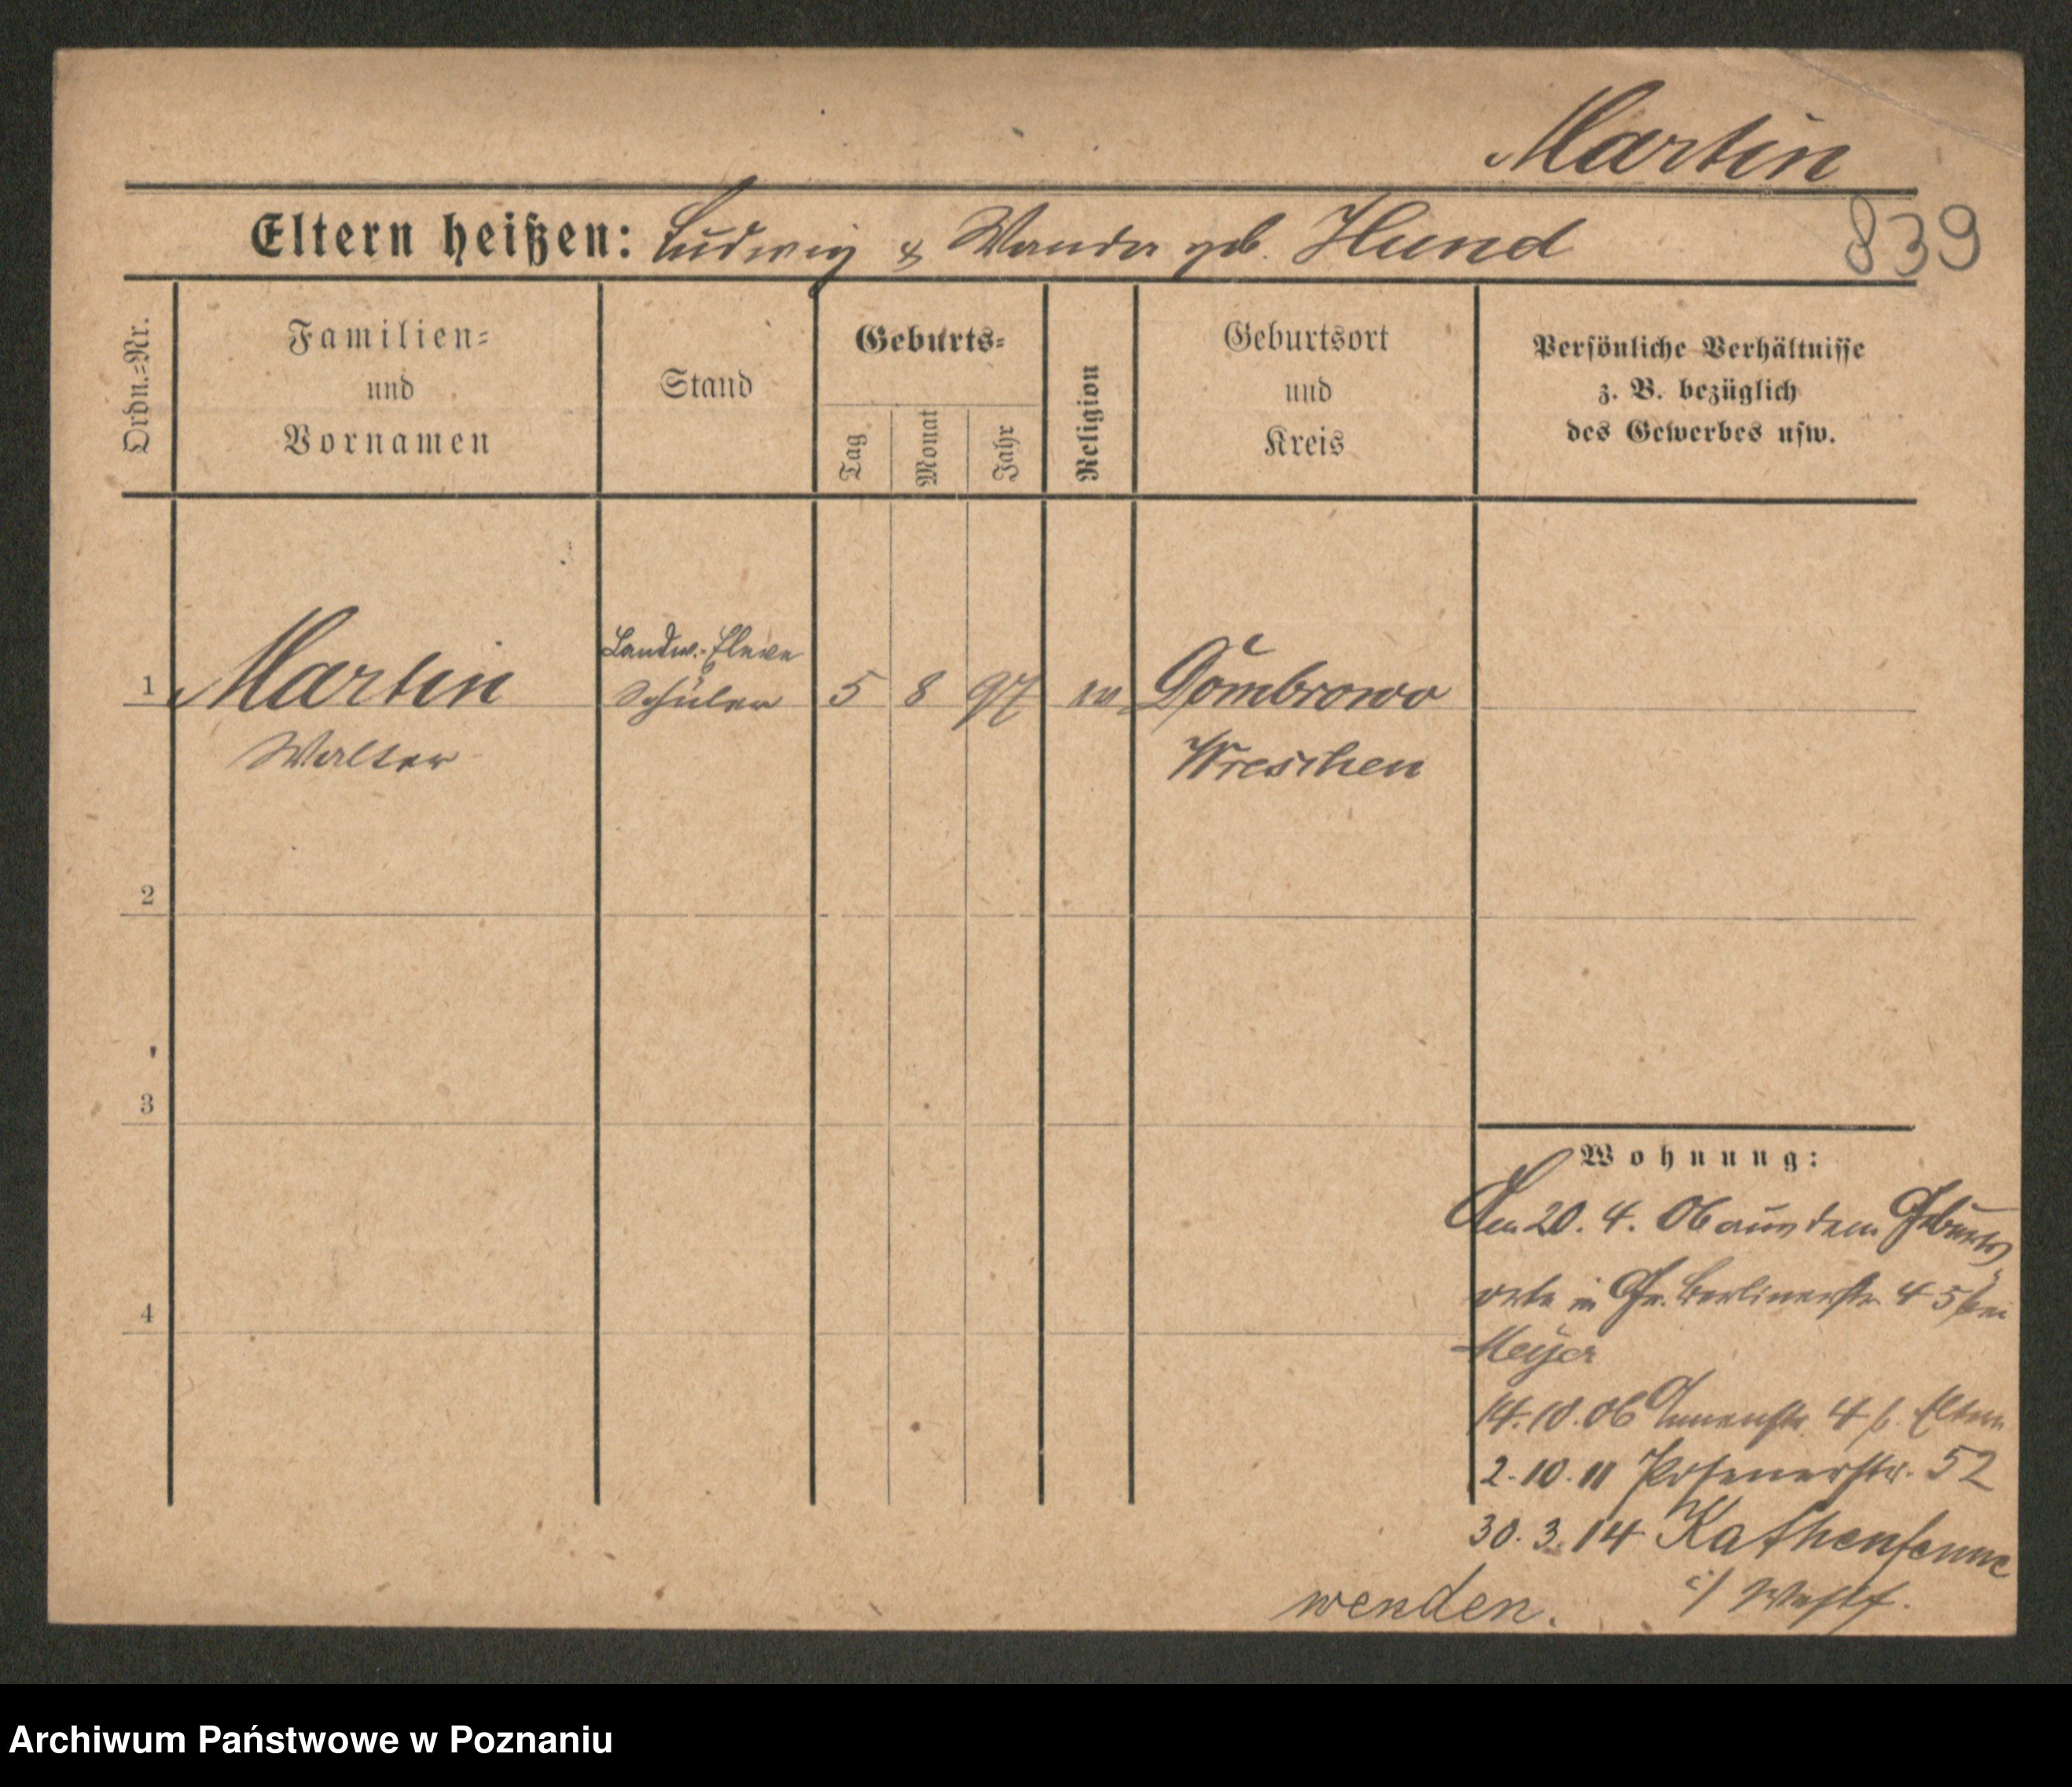 Martin
Eltern heißen: Ludwig & Wanda geb. Hund
839
Ordn.=Nr.
Familien=
und
Vornamen
Stand
Geburts=
Tag
Monat
Jahr
Religion
Geburtsort
und
Kreis
Persönliche Verhältnisse
z. B. bezüglich
des Gewerbes usw.
Landw.-Eleve
1 Martin Schüler 5 8 97 ev. Dombrowo
Walter Wreschen
2
3
4
Wohnung:
Am 20. 4. 06 aus dem Geburts
orte in Gr. Berlinerstr. 45 bei
Meyer
14. 10. 06 4 b. Eltern
2. 10. 11 Posenerstr. 52
30. 3. 14
i/ Westf.
wenden.
Archiwum Państwowe w Poznaniu